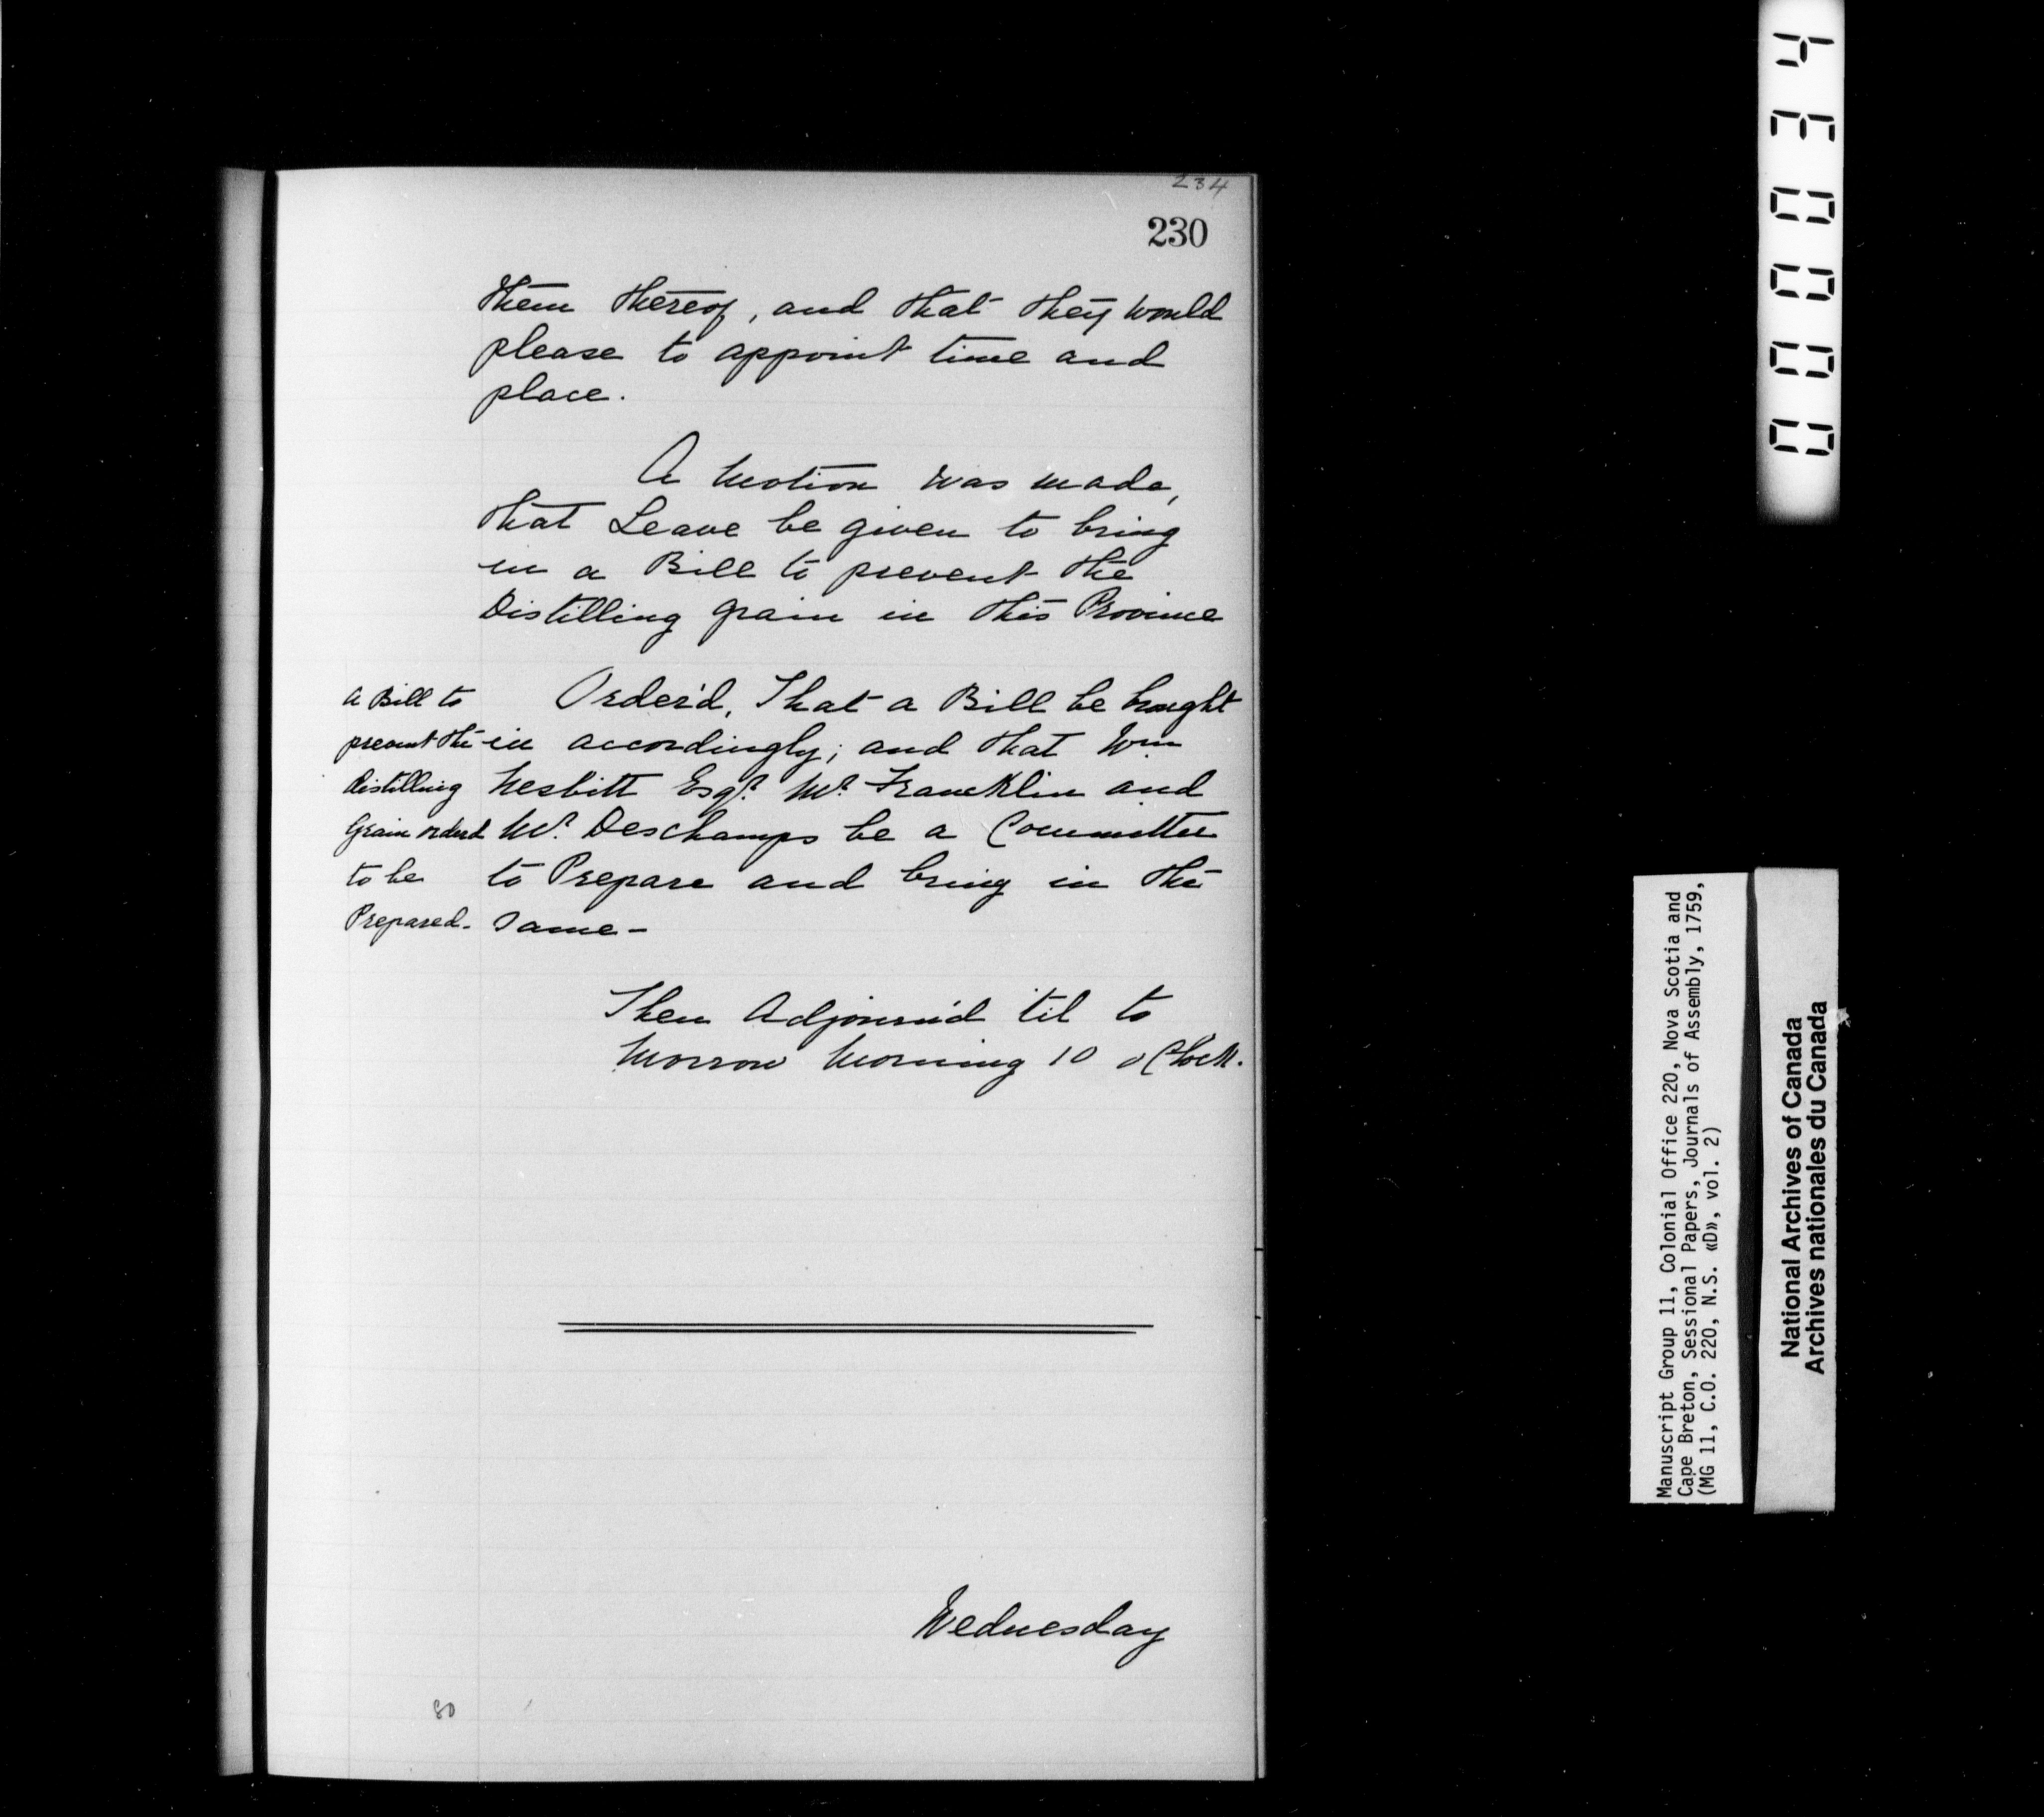 234
230
them thereof, and that they would
please to appoint time and
place.
A Motion was made,
that Leave be given to bring
in a Bill to prevent the
Distilling grain in this Province
A Bill to
prevent the
distilling
Grain orderd
to be
Prepared.
Order'd, That a Bill be brought
in accordingly; and that Wm
Nesbitt Esqr. Mr. Francklin and
Mr. Deschamps be a Committee
to Prepare and bring in the
Same—
Then Adjourn'd til to
Morrow Morning 10 oClock.
Wednesday
80
000034
Manuscript Group 11, Colonial Office 220, Nova Scotia and
Cape Breton, Sessional Papers, Journals of Assembly, 1759,
(MG 11, C.O. 220, N.S. «D», vol. 2)
National Archives of Canada
Archives nationales du Canada